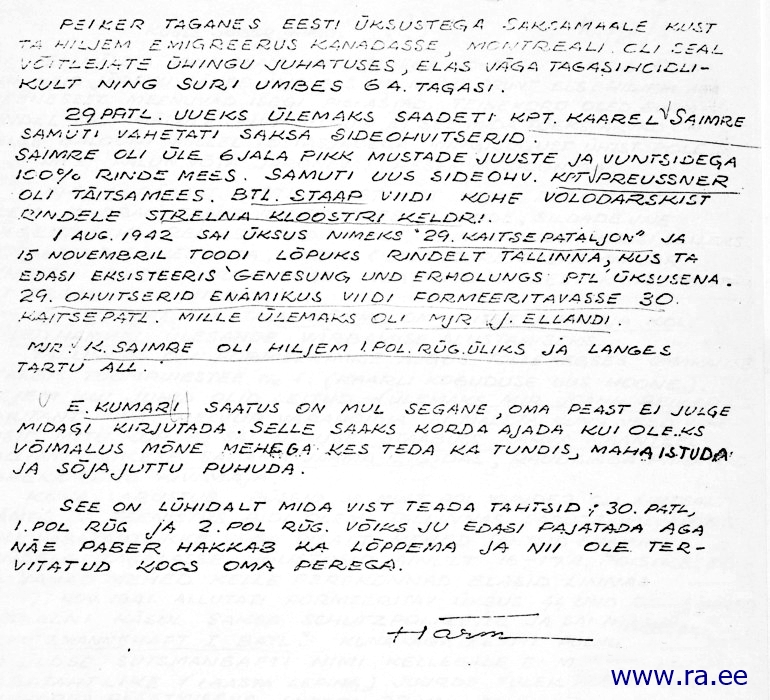 PEIKER TAGANES EESTI ÜKSUSTEGA SAKSAMAALE KUST
TA HILJEM EMIGREERUS KANADASSE, MONTREALI. OLI SEAL
VÕITLEJATE ÜHINGU JUHATUSES, ELAS VÄGA TAGASIHOIDLI-
KULT NING SURI UMBES 6 A. TAGASI.
29 PATL. UUEKS ÜLEMAKS SAADETI KPT. KAAREL SAIMRE
SAMUTI VAHETATI SAKSA SIDEOHVITSERID
SAIMRE OLI ÜLE 6 JALA PIKK MUSTADE JUUSTE JA VUNTSIDEGA
100% RINDE MEES. SAMUTI UUS SIDEOHV. KPT PREUSSNER
OLI TÄITSAMEES. BTL. STAAP VIIDI KOHE VOLODARSKIST
RINDELE STRELNA KLOOSTRI KELDRI.
1 AUG. 1942 SAI ÜKSUS NIMEKS "29. KAITSEPATALJON" JA
15 NOVEMBRIL TOODI LÕPUKS RINDELT TALLINNA, KUS TA
EDASI EKSISTEERIS "GENESUNG UND ERHOLUNGS PTL" ÜKSUSENA.
29. OHVITSERID ENAMIKUS VIIDI FORMEERITAVASSE 30.
KAITSEPATL. MILLE ÜLEMAKS OLI MJR J. ELLANDI.
MJR. K. SAIMRE OLI HILJEM 1. POL. RÜG. ÜLIKS JA LANGES
TARTU ALL.
E. KUMARI SAATUS ON MUL SEGANE, OMA PEAST EI JULGE
MIDAGI KIRJUTADA. SELLE SAAKS KORDA AJADA KUI OLEKS
VÕIMALUS MÕNE MEHEGA KES TEDA KA TUNDIS, MAHA ISTUDA
JA SÕJAJUTTU PUHUDA.
SEE ON LÜHIDALT MIDA VIST TEADA TAHTSID; 30. PATL,
1. POL RÜG JA 2. POL RÜG. VÕIKS JU EDASI PAJATADA AGA
NÄE PABER HAKKAB KA LÕPPEMA JA NII OLE TER-
VITATUD KOOS OMA PEREGA.
Härm
www.ra.ee